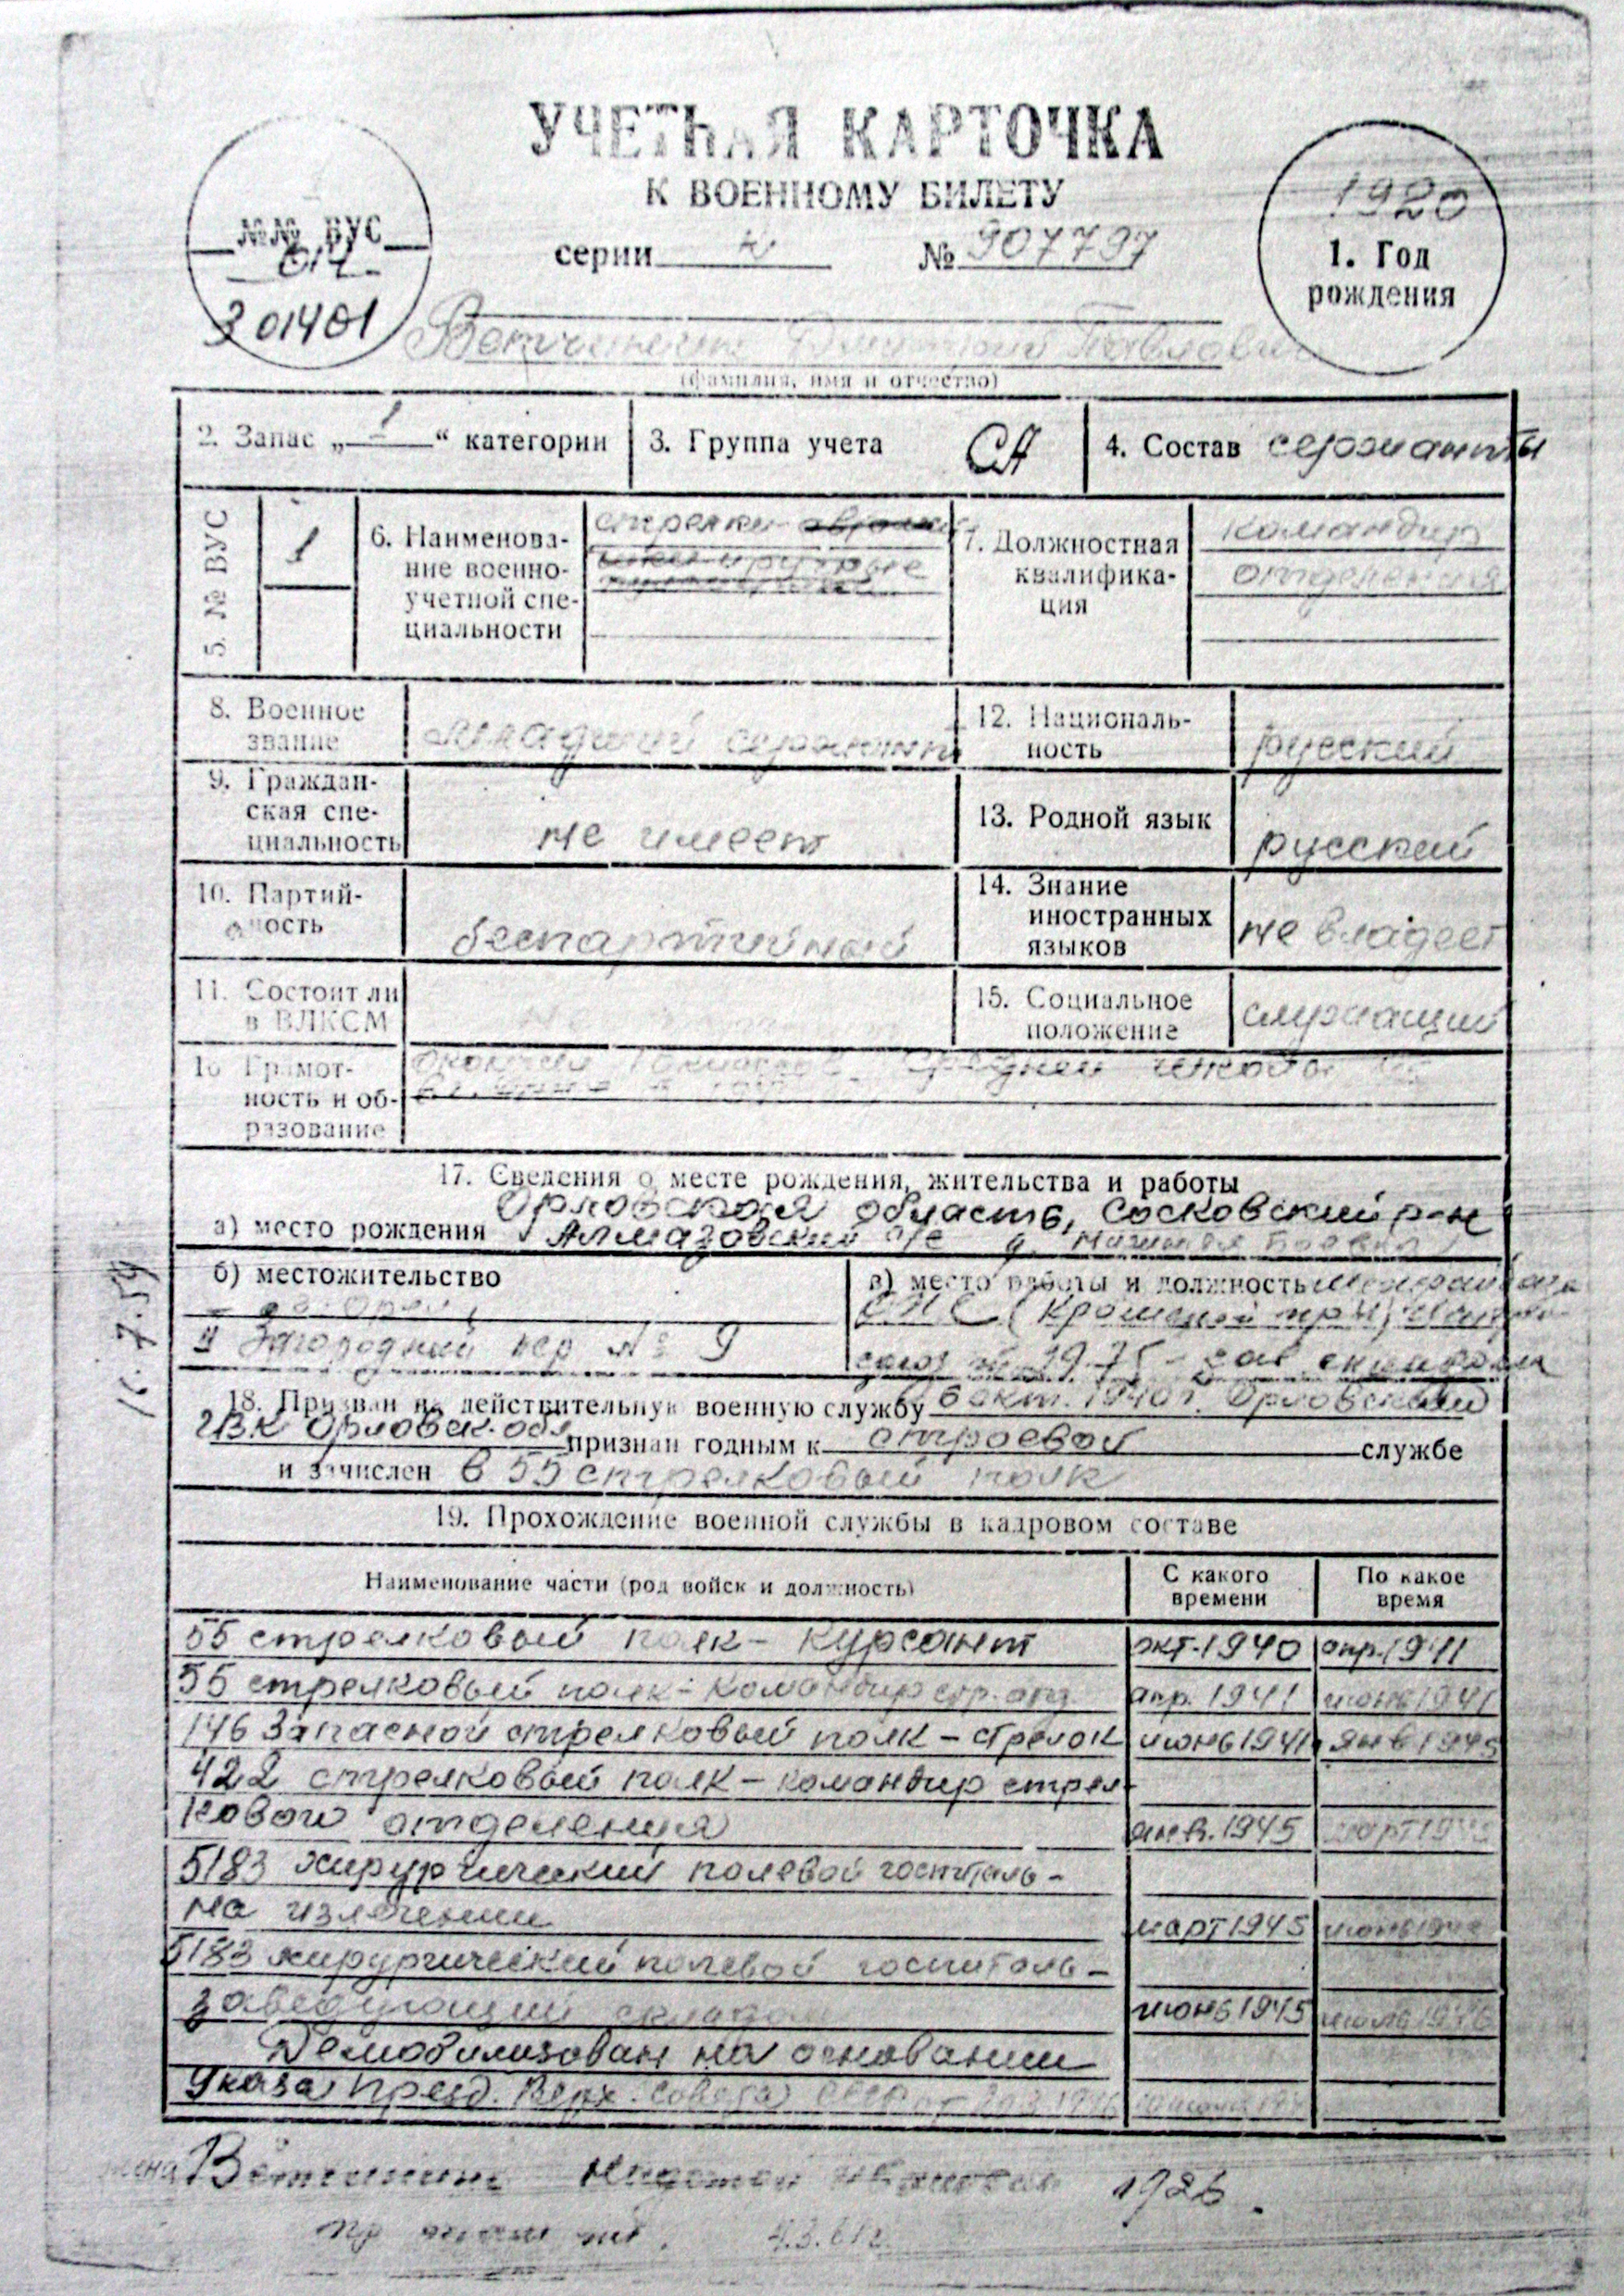 УЧЕТНАЯ КАРТОЧКА
К ВОЕННОМУ БИЛЕТУ
серии № 907797
№№ ВУС
301401
1920
1. Год
рождения
Павлович
(фамилия, имя и отчество)
2. Запас „1“ категории
3. Группа учета СА
4. Состав сержанты
5. № ВУС 1
6. Наименова-
ние военно-
учетной спе-
циальности
стрелки
7. Должностная
квалифика-
ция
командир
отделения
8. Военное
звание
младший сержант
12. Националь-
ность
русский
9. Граждан-
ская спе-
циальность
не имеет
13. Родной язык
русский
10. Партий-
ность
беспартийный
14. Знание
иностранных
языков
не владеет
11. Состоит ли
в ВЛКСМ
15. Социальное
положение
служащий
16 Грамот-
ность и об-
разование
средней школы
17. Сведения о месте рождения, жительства и работы
Орловская область, Сосковский р-н
а) место рождения Алмазовский с/с д.
б) местожительство
Загородний пер № 9
в) место работы и должность
зав складом
18. Призван на действительную военную службу 6 окт. 1940 г. Орловским
ГВК Орловск. обл признан годным к строевой службе
и зачислен в 55 стрелковый полк
19. Прохождение военной службы в кадровом составе
Наименование части (род войск и должность)
С какого
времени
По какое
время
55 стрелковый полк - курсант окт. 1940 апр. 1941
55 стрелковый полк - командир стр. отд апр. 1941 июнь 1941
146 Запасной стрелковый полк - стрелок июнь 1941 янв 1945
422 стрелковый полк - командир стрел-
кового отделения янв. 1945 март
5183 хирургический полевой госпиталь -
на излечении март 1945 июнь
5183 хирургический полевой госпиталь -
заведующий складом июнь 1945
Демобилизован на основании
Указа През. Верх. Совета СССР от
1926.